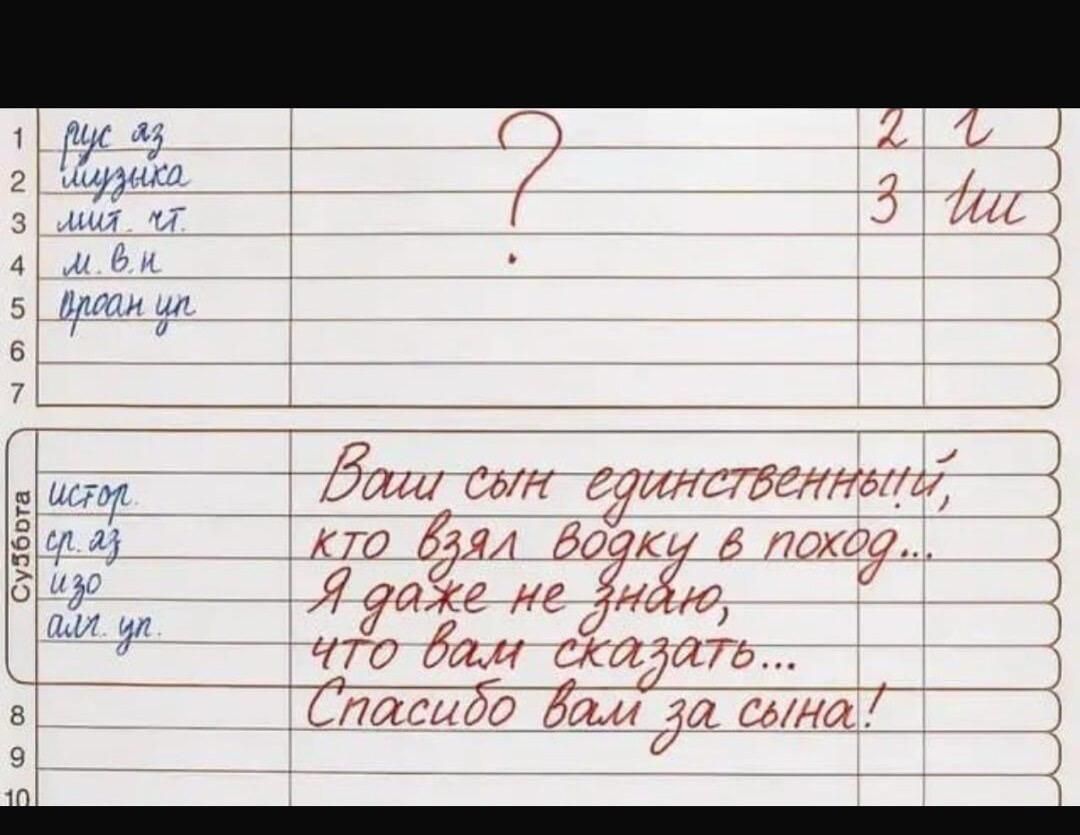 1 рус яз 2
2 музыка
3 мит. чт. ? 3
4 м.в.н
5 уп
6
7
Суббота
истор.
ср. яз
изо
алг. уп.
Ваш сын единственный,
кто взял водку в поход...
Я даже не знаю,
что вам сказать...
Спасибо вам за сына!
8
9
10